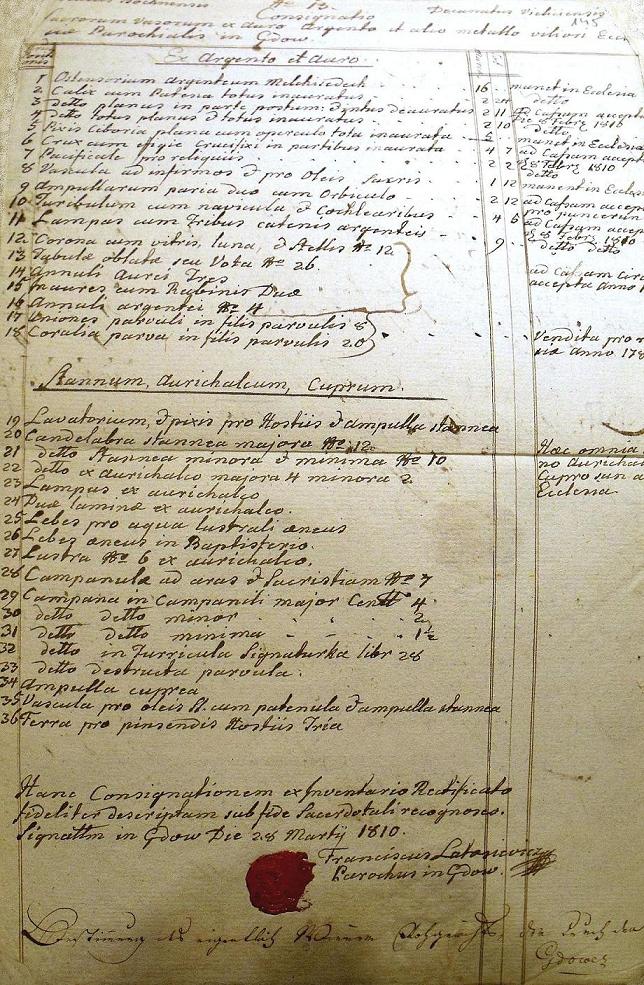 No 13. Decanatus
Consignatio 145
Sacrorum Vasorum ex Auro Argento et alio metallo viliori
Parochialis in Gdow
Ex Argento et Auro.
1 Ostensorium argenteum Melchisedech 16 manet in Ecclesia
2 Calix cum Patena totus inauratus 2 24 detto
3 detto planus in parte postum: d inauratus 2 11 ad Cassam accept
4 detto totus planus d totus inauratus 2 10 1810
5 Pixis Ciboria plana cum operculo tota inaurata detto
6 Crux cum effigie Crucifixi in partibus inaurata manet in Ecclesia
7 Pacificale pro reliquiis 4 7 ad Cassam accep
8 Vascula ad infirmos d pro Oleis Sacris 2 2 1810
9 Ampullarum paria duo cum Orbiculo 1 12 manent in Ecclesia
10 Turibulum cum navicula d Cochlearibus 2 12 ad Cassam accep
11 Lampas cum Tribus catenis argenteis 4 6 ad Cassam accep
12 Corona cum vitris, luna, d Stellis No 12 9 detto detto
13 Tabulæ oblatæ seu Vota No 26
14 Annuli Aurei Tres ad Cassam Cir
15 Inaures cum Rubinis Duæ accepta anno 1
16 Annuli argentei No 4
17 Uniones parvuli in filis parvulis 8
18 Coralia parva in filis parvulis 20 Vendita pro
anno 178
Stannum, Aurichalcum, Cuprum.
19 Lavatorium, d pixis pro Hostiis d ampulla stannea
20 Candelabra stannea majora No 12
21 detto Stannea minora d minima No 10 Hæc omnia
22 detto ex Aurichalco majora 4 minora 2 no Aurichal
23 Lampas ex aurichalco Cupro sun a
24 Duæ laminæ ex aurichalco. Ecclesia
25 Lebes pro aqua lustrali æneus
26 Lebes æneus in Baptisterio.
27 Lustra No 6 ex aurichalco.
28 Campanulæ ad aras d Sacristiam No 7
29 Campana in Campanili major Centt 4
30 detto detto minor 2
31 detto detto minima 1½
32 detto in Turricula Signaturka libr 28
33 detto destructa parvula.
34 Ampulla cuprea
35 Vascula pro oleis St. cum patenula d ampulla stannea
36 Ferra pro pinsendis Hostiis Tria
Hanc Consignationem ex Inventario Rectificato
fideliter descriptam sub fide Sacerdotali recognosco.
Signattm in Gdow Die 28 Martij 1810.
Franciscus
Parochus in Gdow.
eigentlich
Gdower